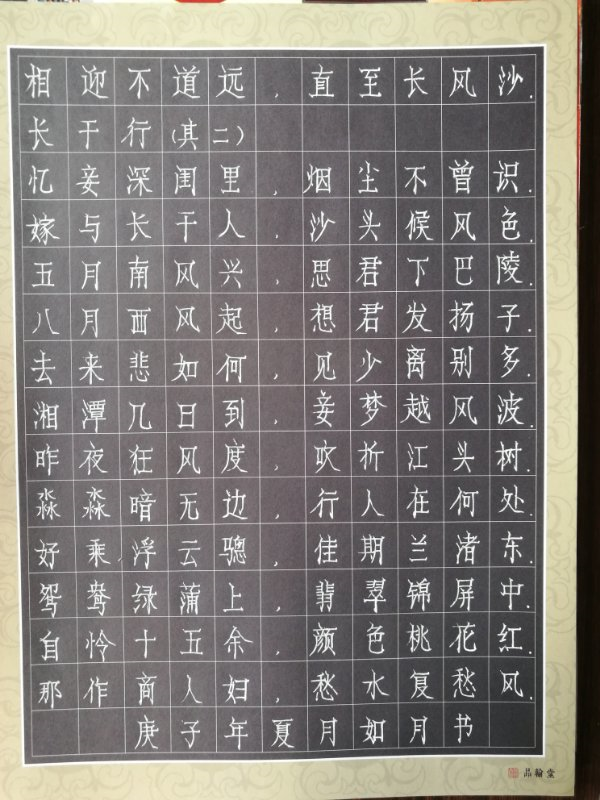 相迎不道远，直至长风沙.
长干行（其二）
忆妾深闺里，烟尘不曾识.
嫁与长干人，沙头候风色.
五月南风兴，思君下巴陵.
八月西风起，想君发扬子.
去来悲如何，见少离别多.
湘潭几日到，妾梦越风波.
昨夜狂风度，吹折江头树.
淼淼暗无边，行人在何处.
好乘浮云骢，佳期兰渚东.
鸳鸯绿蒲上，翡翠锦屏中.
自怜十五余，颜色桃花红.
那作商人妇，愁水复愁风.
庚子年夏月如月书
品翰堂